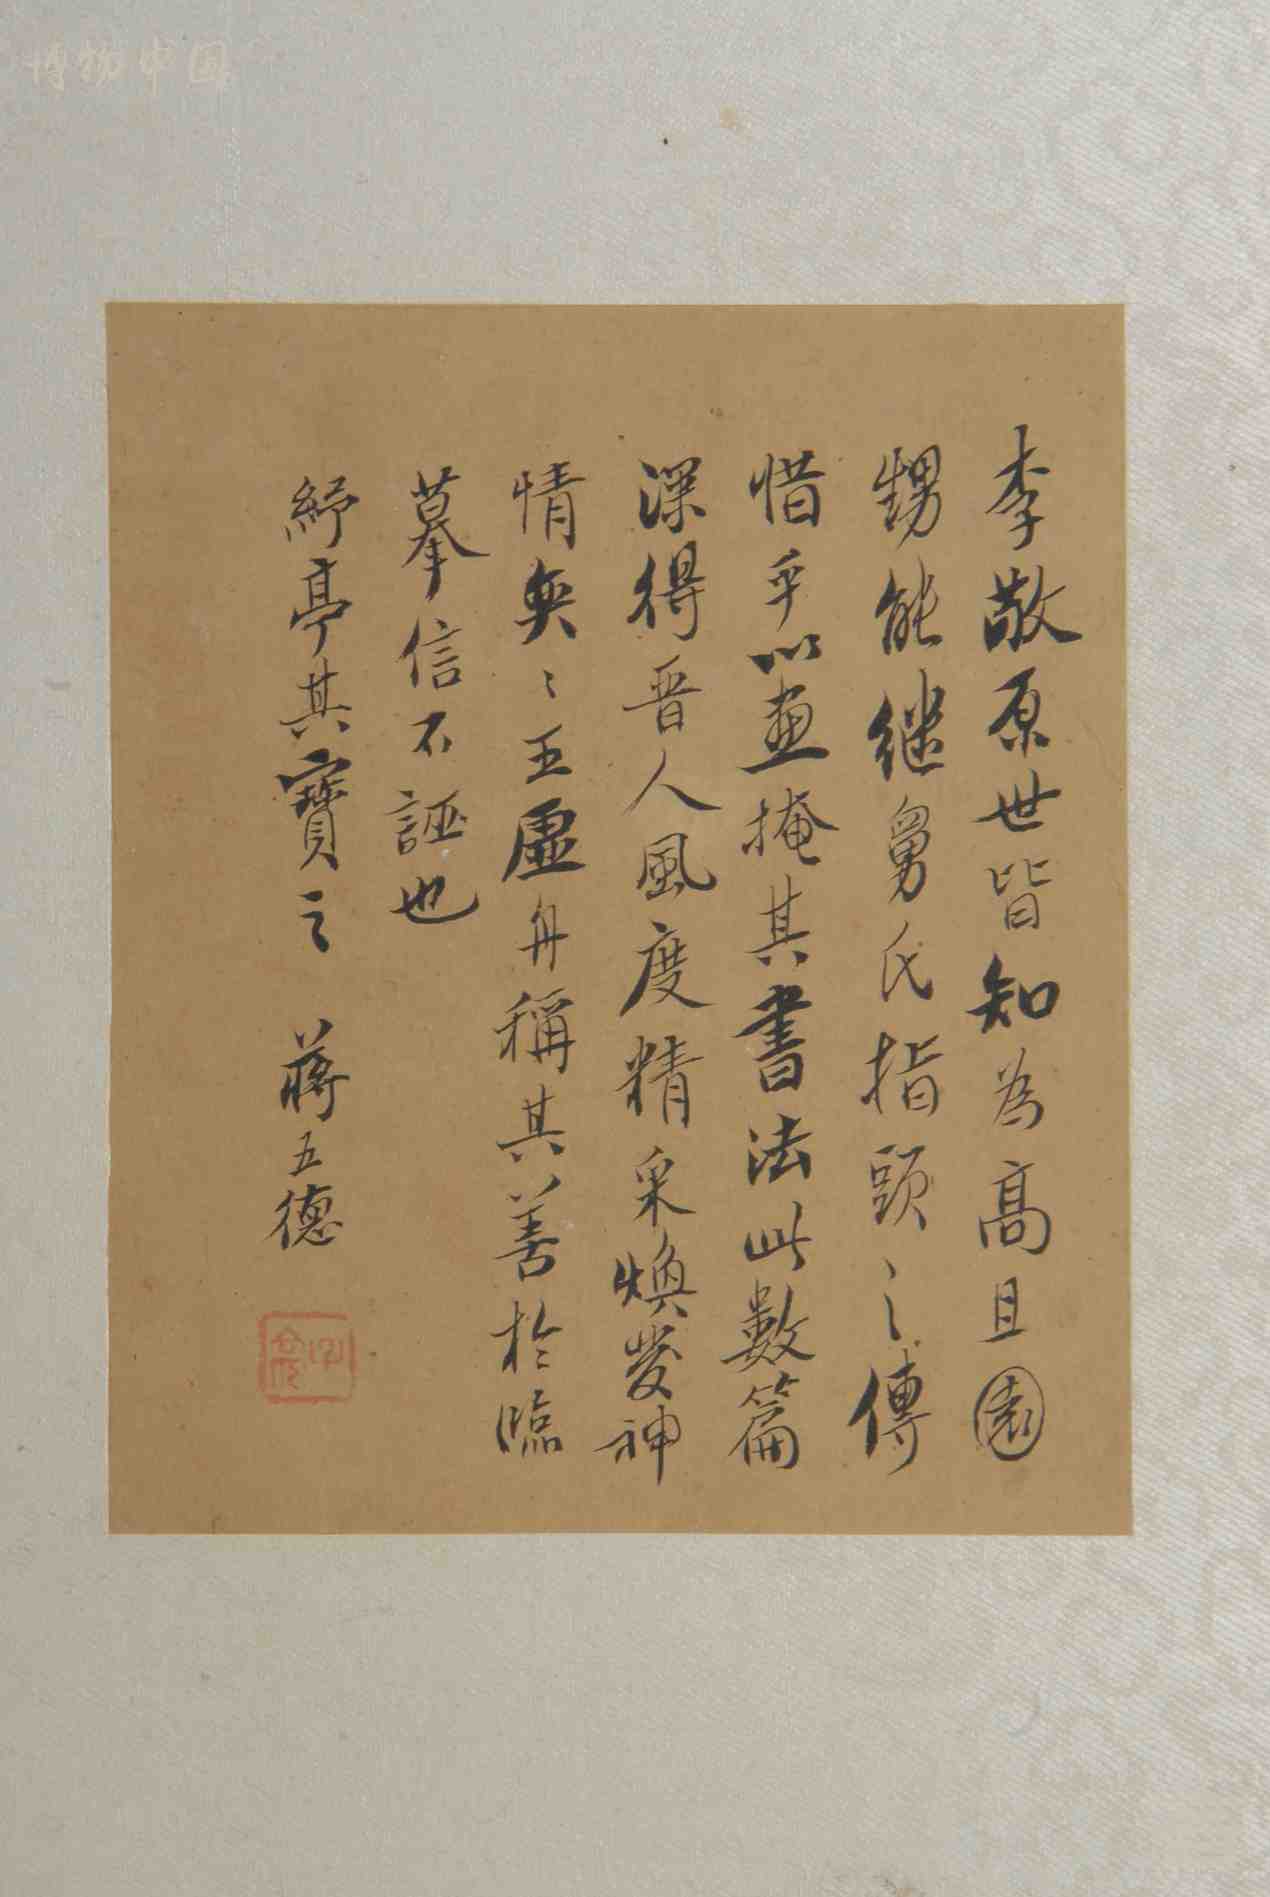 博物中国
李敬原世皆知為高且園
甥能继舅氏指頭之傳
惜乎以畫掩其書法此數篇
深得晋人風度精采煥發神
情奕〻王虛舟稱其善於臨
摹信不誣也
紓亭其寶之 蔣五德